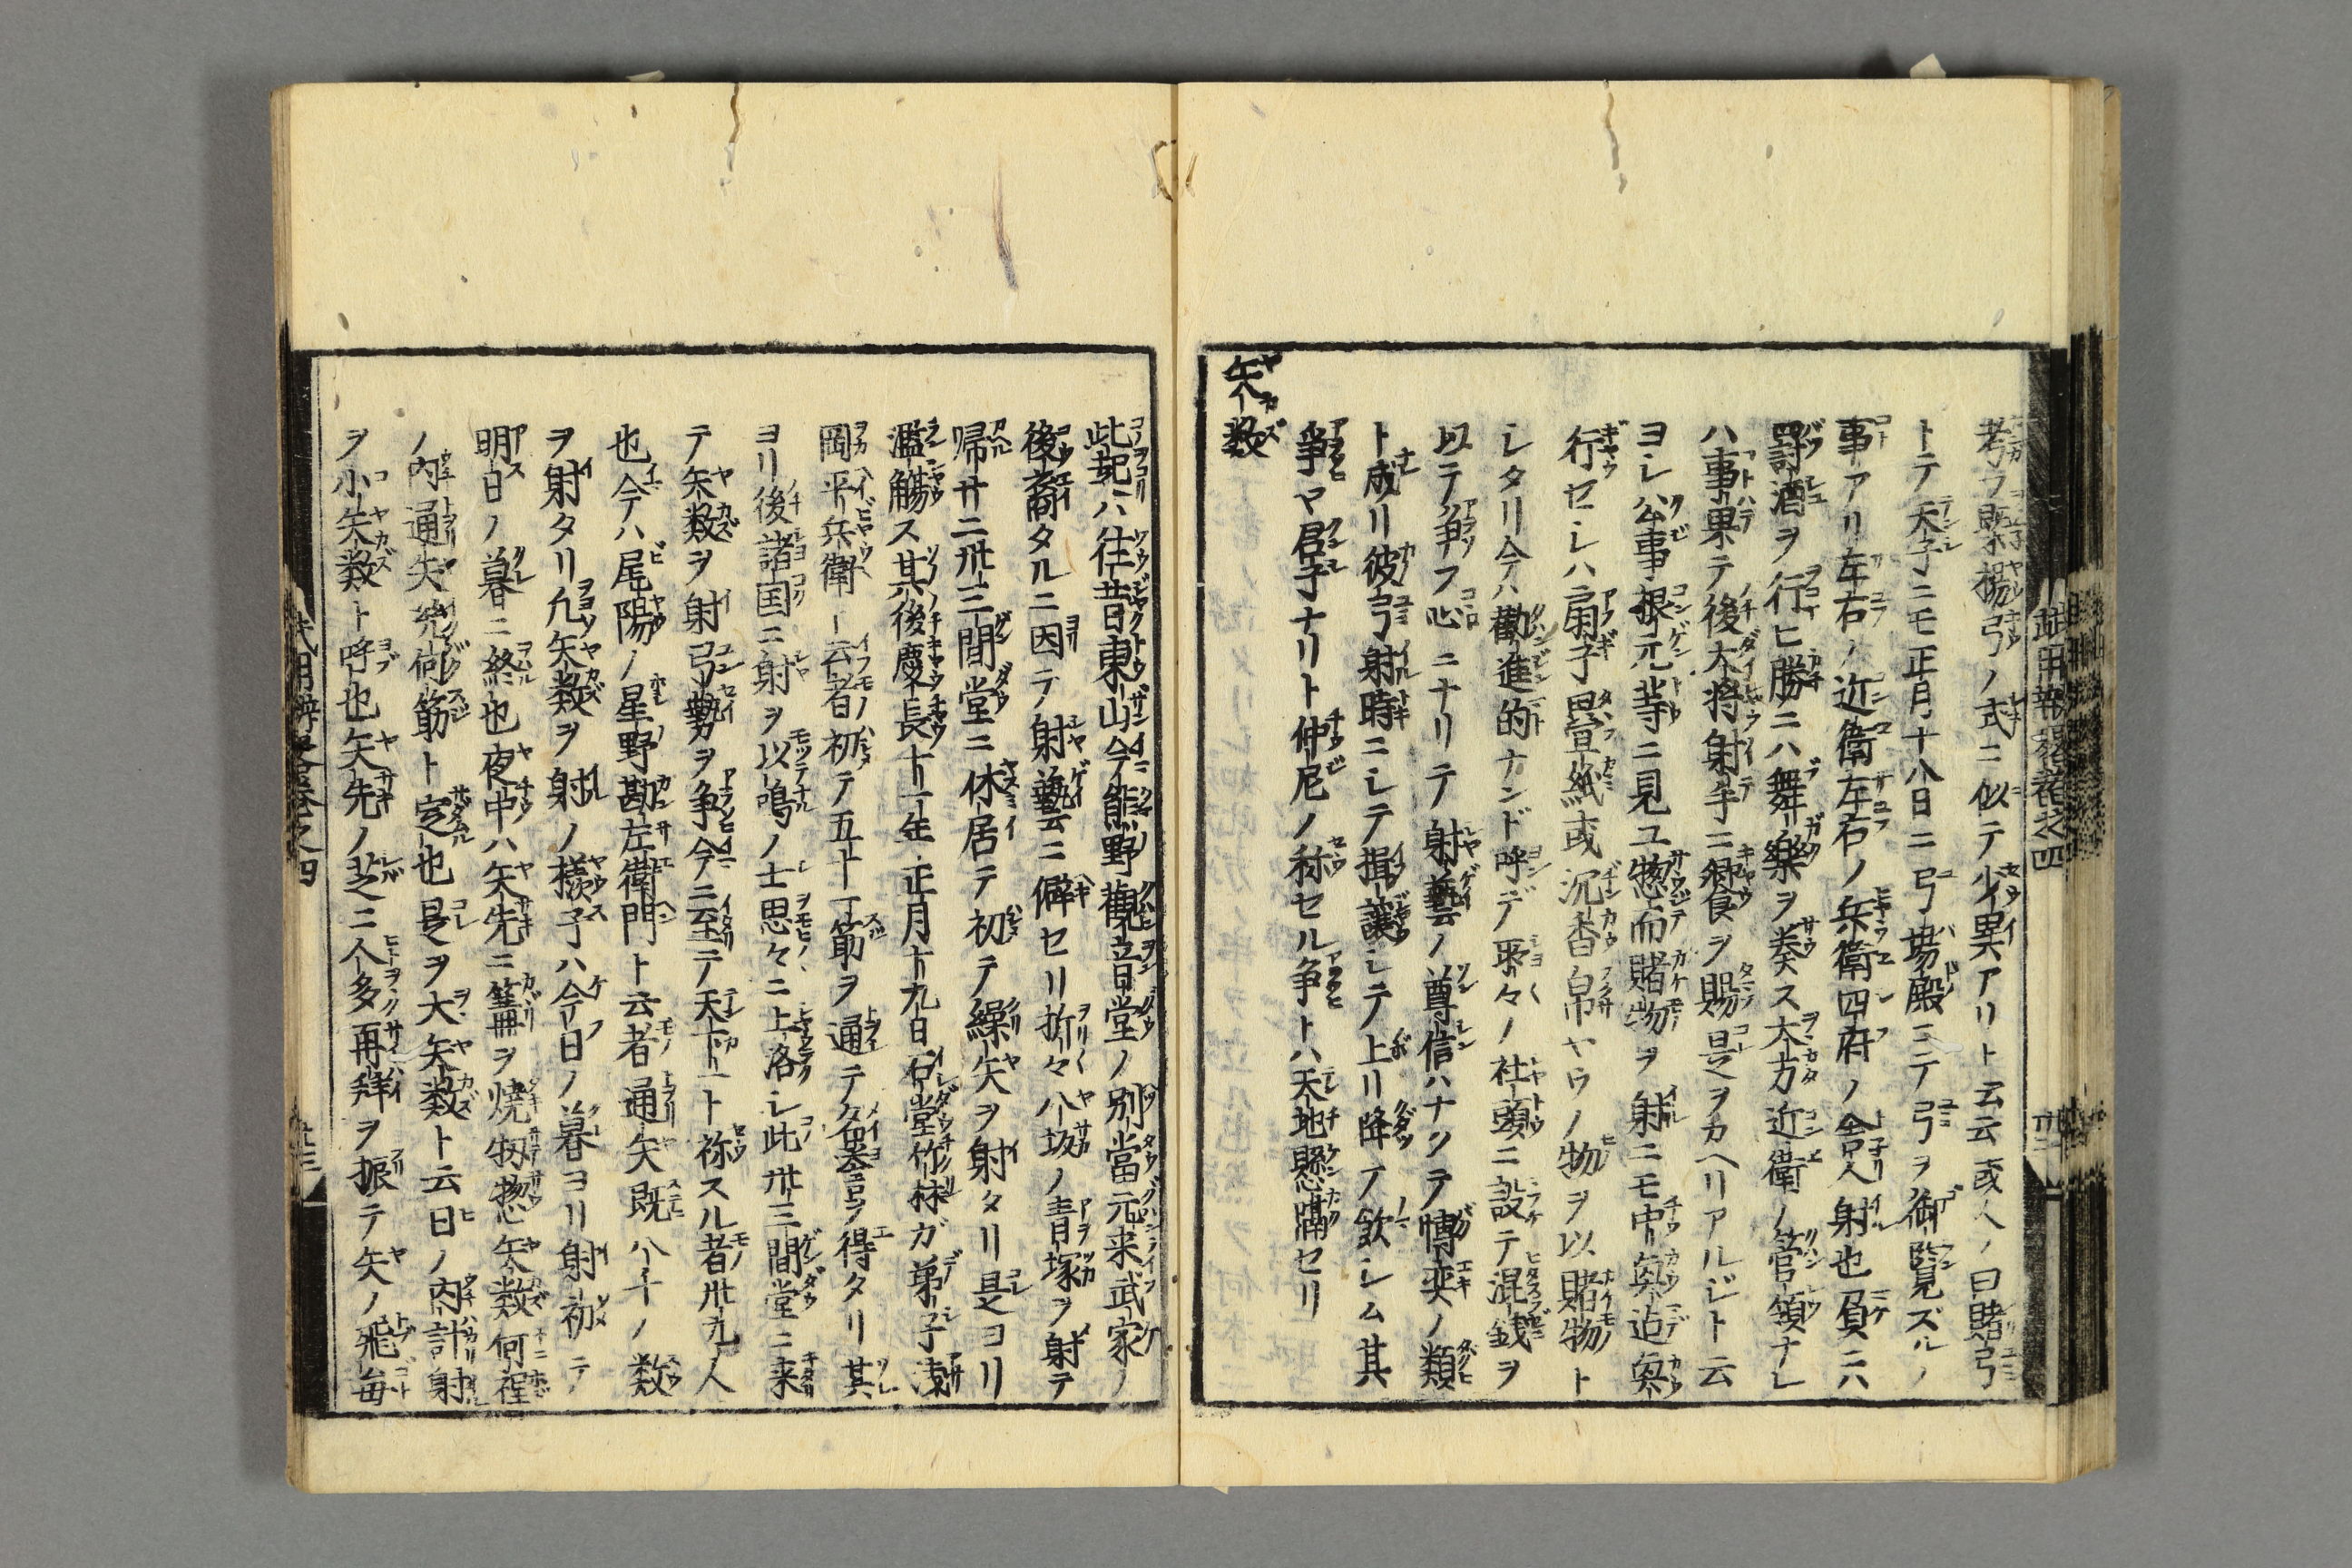 考フ聚楊弓ノ式ニ似テ少異アリト云云或人ノ曰賭弓
トテ天子ニモ正月十八日ニ弓場殿ニテ弓ヲ御覧ズルノ
事アリ左右ノ近衛左右ノ兵衛四府ノ舎人射也負ニハ
罸酒ヲ行ヒ勝ニハ舞樂ヲ奏ス大方近衛ノ管領ナレ
ハ事果テ後大将射手ニ饗食ヲ賜是ヲカヘリアルジト云
ヨシ公事根元等ニ見ユ惣而賭物ヲ射ニモ中奥迠奥
行セシハ扇子畳紙或沉香帛ヤウノ物ヲ以賭物ト
シタリ今ハ勸進的ナンド呼デ所々ノ社頭ニ設テ混銭ヲ
以テ争フ心ニナリテ射藝ノ尊信ハナクテ博奕ノ類
ト成リ彼弓射時ニシテ揖讓シテ上リ降テ飲シム其
爭ヤ君子ナリト仲尼ノ称セル争トハ天地懸隔セリ
矢数
此起ハ往昔東山今熊野觀音堂ノ別當元来武家ノ
後裔タルニ因テ射藝ニ僻セリ折々八坂ノ青塚ヲ射テ
帰サニ卅三間堂ニ休居テ初テ繰矢ヲ射タリ是ヨリ
濫觴ス其後慶長十一年正月十九日石堂竹林ガ弟子淺
岡平兵衛ト云者初テ五十一筋ヲ通テ名誉ヲ得タリ其
ヨリ後諸国ニ射ヲ以鳴ノ士思々ニ上洛シ此卅三間堂ニ来
テ矢数ヲ射弓勢ヲ争今ニ至テ天下一ト称スル者卅九人
也今ハ尾陽ノ星野勘左衛門ト云者通矢既八千ノ数
ヲ射タリ凢矢数ヲ射ノ様子ハ今日ノ暮ヨリ射初テ
明日ノ暮ニ終也夜中ハ矢先ニ篝ヲ焼扨惣矢数何程
ノ内通矢幾何筋ト定也是ヲ大矢数ト云日ノ内計射
ヲ小矢数ト呼也矢先ノ芝ニ人多再拜ヲ振テ矢ノ飛毎